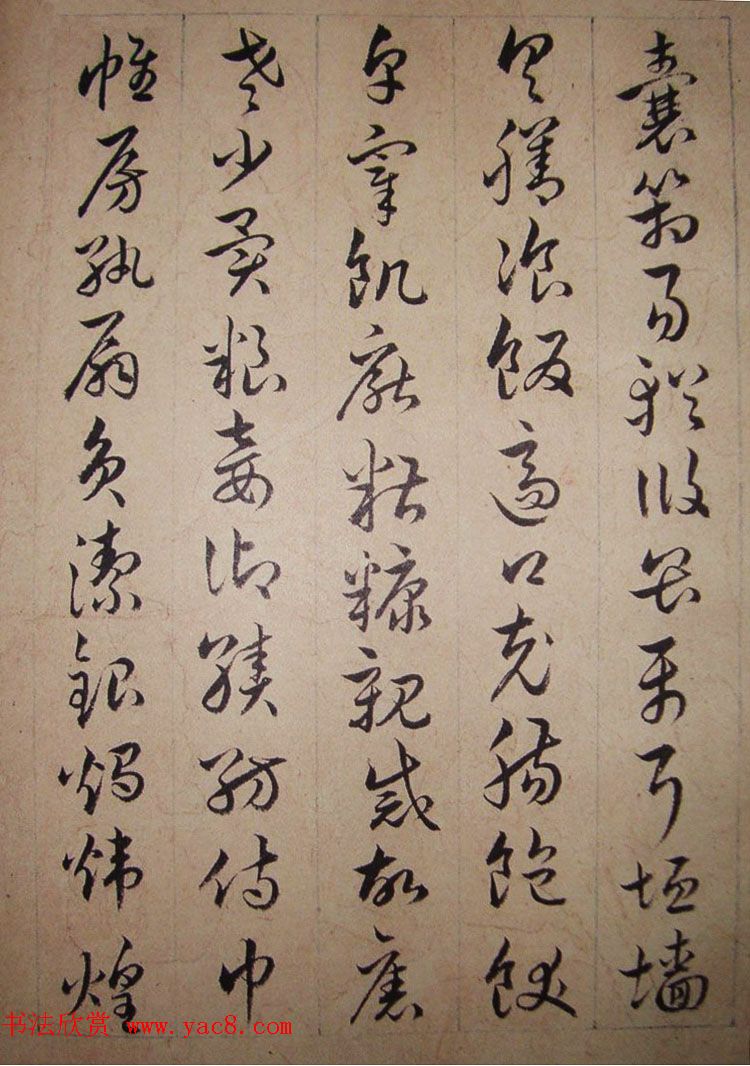 囊箱易輶攸畏屬耳垣墙
具膳飡飯適口充腸飽飫
亨宰飢厭糟糠親戚故舊
老少異粮妾御績紡侍巾
帷房紈扇員潔銀燭煒煌
书法欣赏 www.yac8.com